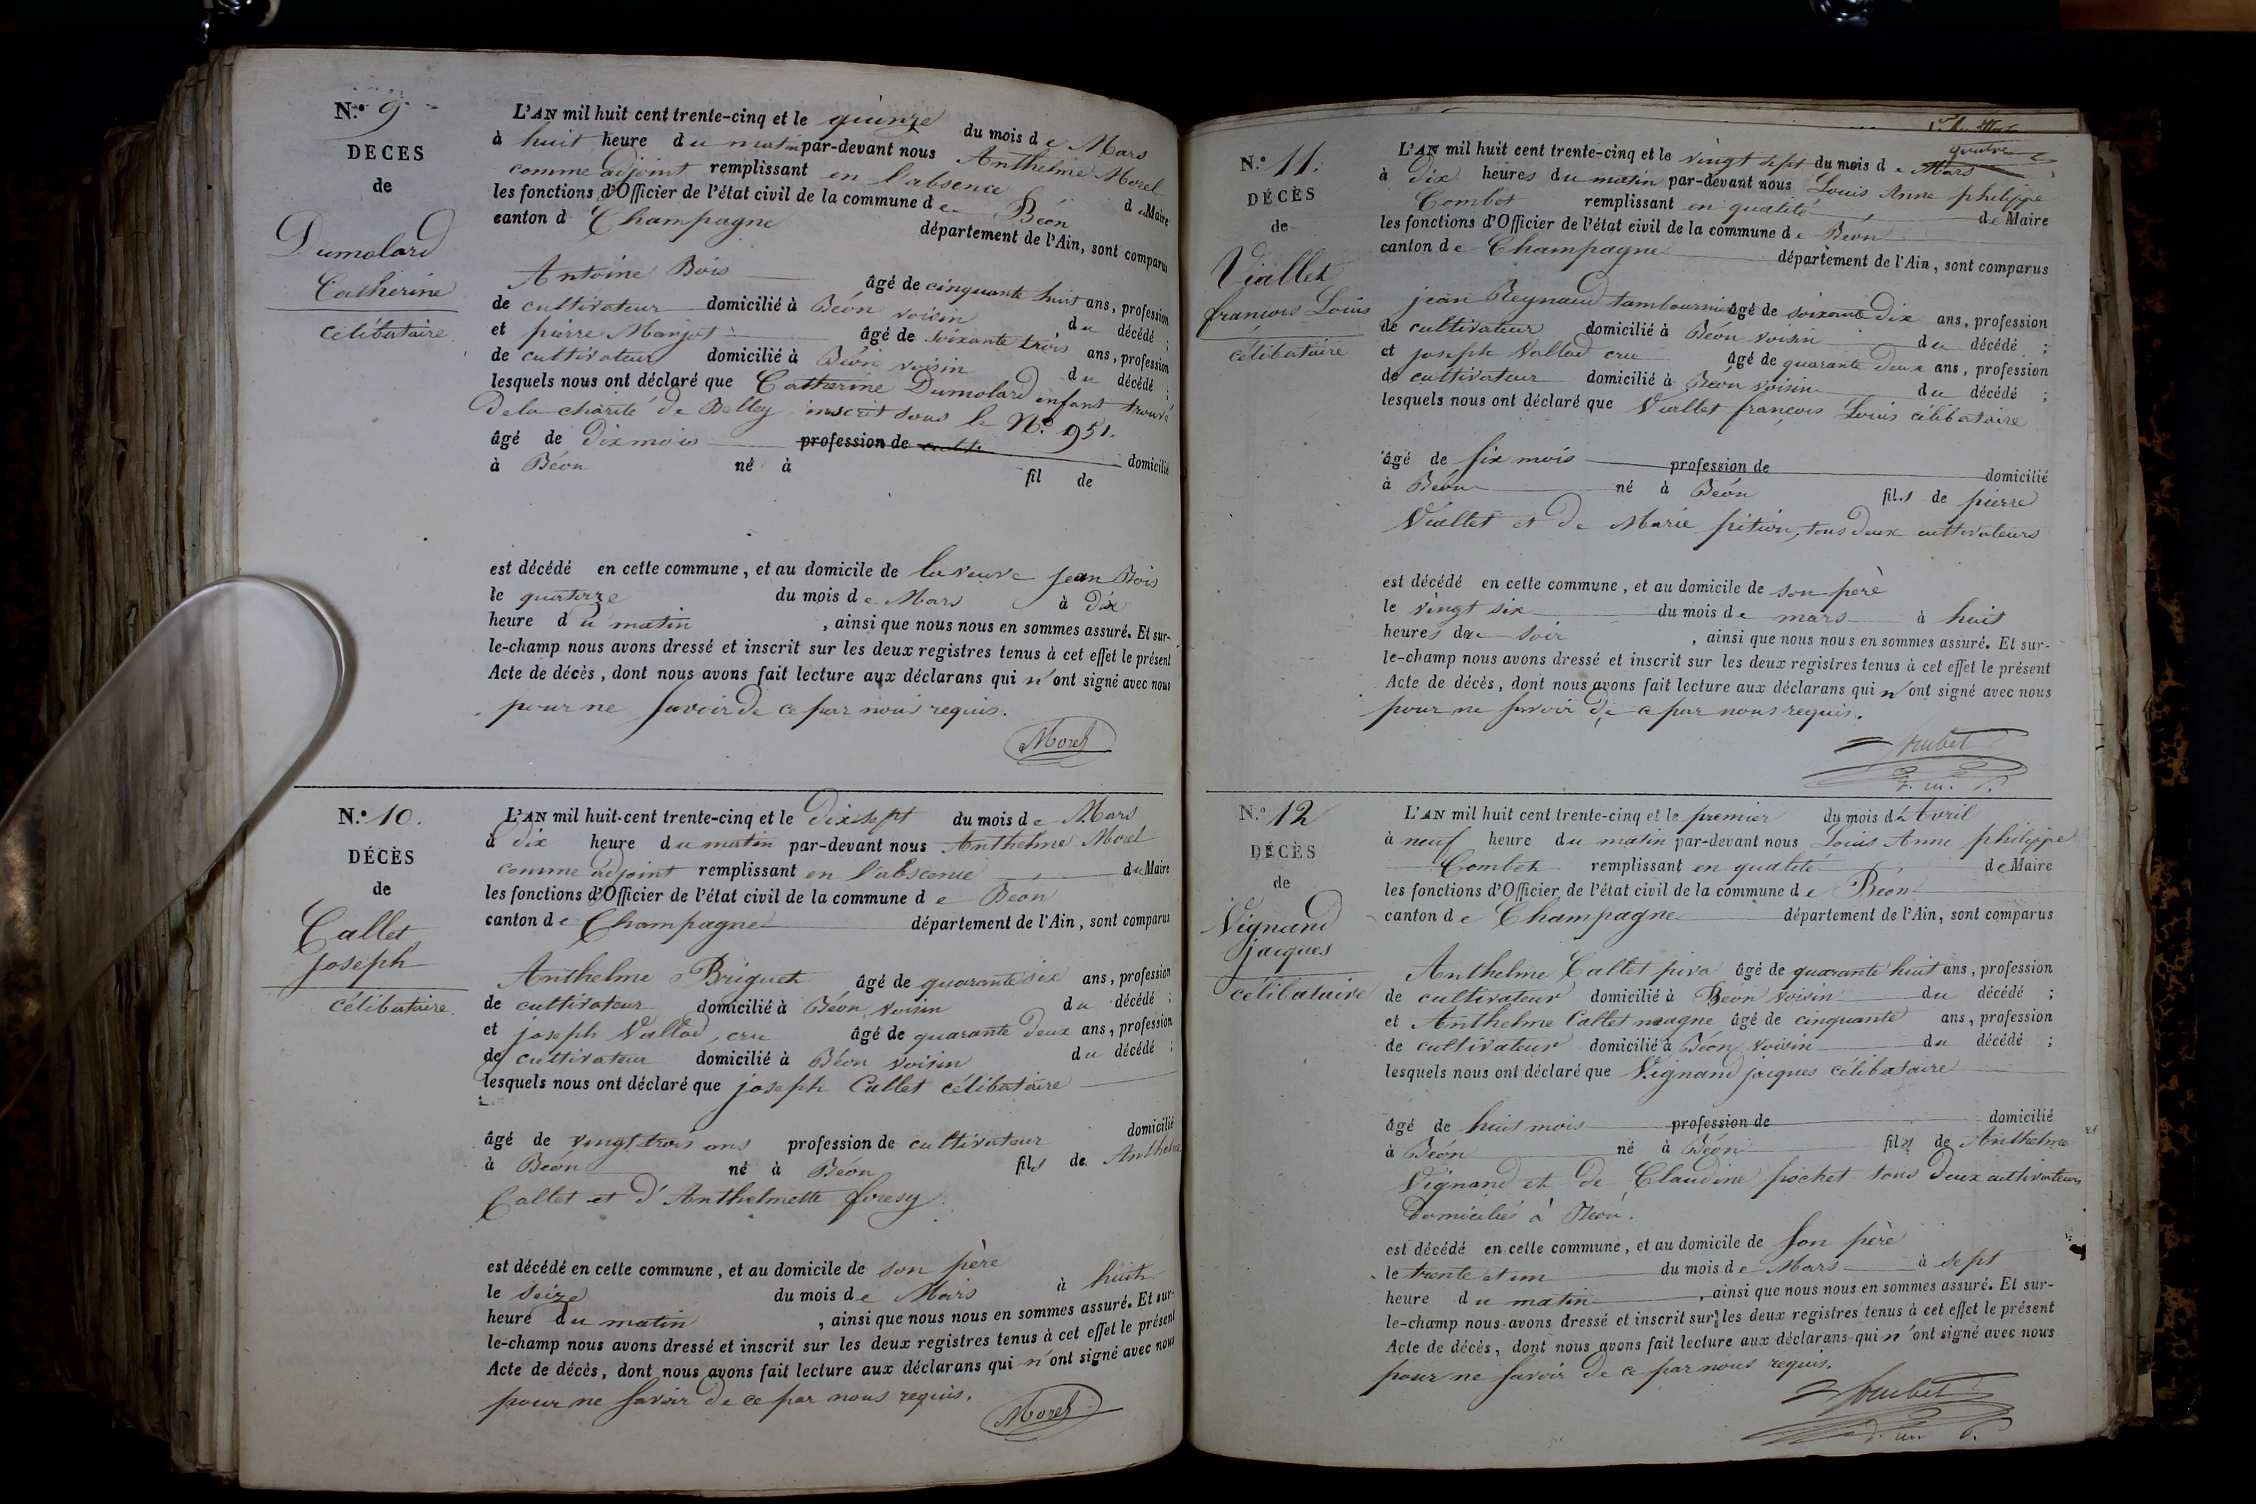 N.º 9
DECES
de
Dumolard
Catherine
célibataire
L'AN mil huit cent trente-cinq et le quinze du mois de Mars
à huit heure du matin par-devant nous Anthelme Morel
comme adjoint remplissant en l'absence du Maire
les fonctions d'Officier de l'état civil de la commune de Béon
canton d Champagne département de l'Ain, sont comparus
Antoine Bois âgé de cinquante huit ans, profession
de cultivateur domicilié à Béon voisin du décédé ;
et pierre Marjot âgé de soixante trois ans, profession
de cultivateur domicilié à Béon voisin du décédé ;
lesquels nous ont déclaré que Catherine Dumolard enfant trouvé
de la charité de Belley inscrit sous le N.º 951.
âgé de dix mois profession de domicilié
à Béon né à fil de
est décédé en cette commune, et au domicile de la veuve jean Bois
le quatorze du mois de Mars à dix
heure du matin , ainsi que nous nous en sommes assuré. Et sur-
le-champ nous avons dressé et inscrit sur les deux registres tenus à cet effet le présent
Acte de décès, dont nous avons fait lecture aux déclarans qui n'ont signé avec nous
pour ne savoir de ce par nous requis.
Morel
N.º 10.
DÉCÈS
de
Callet
joseph
célibataire.
L'AN mil huit cent trente-cinq et le dix sept du mois de Mars
à dix heure du matin par-devant nous Anthelme Morel
comme adjoint remplissant en l'absence du Maire
les fonctions d'Officier de l'état civil de la commune de Béon
canton de Champagne département de l'Ain, sont comparus
Anthelme Briguet âgé de quarante six ans, profession
de cultivateur domicilié à Béon voisin du décédé ;
et joseph Vallod, cru âgé de quarante deux ans, profession
de cultivateur domicilié à Béon voisin du décédé ;
lesquels nous ont déclaré que joseph Callet célibataire
âgé de vingt trois ans profession de cultivateur domicilié
à Béon né à Béon fils de Anthelme
Callet et d'Anthelmette
est décédé en cette commune, et au domicile de son père
le seize du mois de Mars à huit
heure du matin , ainsi que nous nous en sommes assuré. Et sur-
le-champ nous avons dressé et inscrit sur les deux registres tenus à cet effet le présent
Acte de décès, dont nous avons fait lecture aux déclarans qui n'ont signé avec nous
pour ne savoir de ce par nous requis.
Morel
N.º 11.
DÉCÈS
de
Viallet
françois Louis
célibataire
L'AN mil huit cent trente-cinq et le vingt sept du mois de Mars
à dix heures du matin par-devant nous Louis Anne philippe
Combet remplissant en qualité de Maire
les fonctions d'Officier de l'état civil de la commune de Béon
canton de Champagne département de l'Ain, sont comparus
jean Reynaud âgé de soixante dix ans, profession
de cultivateur domicilié à Béon voisin du décédé ;
et joseph Vallod cru âgé de quarante deux ans, profession
de cultivateur domicilié à Béon voisin du décédé ;
lesquels nous ont déclaré que Viallet françois Louis célibataire
âgé de six mois profession de domicilié
à Béon né à Béon fils de pierre
Viallet et de Marie pition, tous deux cultivateurs
est décédé en cette commune, et au domicile de son père
le vingt six du mois de mars à huit
heures du soir , ainsi que nous nous en sommes assuré. Et sur-
le-champ nous avons dressé et inscrit sur les deux registres tenus à cet effet le présent
Acte de décès, dont nous avons fait lecture aux déclarans qui n'ont signé avec nous
pour ne savoir de ce par nous requis.
N.º 12
DÉCÈS
de
Vignand
jacques
célibataire
L'AN mil huit cent trente-cinq et le premier du mois d'Avril
à neuf heure du matin par-devant nous Louis Anne philippe
Combet remplissant en qualité de Maire
les fonctions d'Officier de l'état civil de la commune de Béon
canton de Champagne département de l'Ain, sont comparus
Anthelme Callet piva âgé de quarante huit ans, profession
de cultivateur domicilié à Béon voisin du décédé ;
et Anthelme Callet magne âgé de cinquante ans, profession
de cultivateur domicilié à Béon voisin du décédé ;
lesquels nous ont déclaré que Vignand jacques célibataire
âgé de huit mois profession de domicilié
à Béon né à Béon fils de Anthelme
Vignand et de Claudine pochet tous deux cultivateurs
domiciliés à Béon.
est décédé en cette commune, et au domicile de son père
le trente et un du mois de Mars à sept
heure du matin , ainsi que nous nous en sommes assuré. Et sur-
le-champ nous avons dressé et inscrit sur les deux registres tenus à cet effet le présent
Acte de décès, dont nous avons fait lecture aux déclarans qui n'ont signé avec nous
pour ne savoir de ce par nous requis.